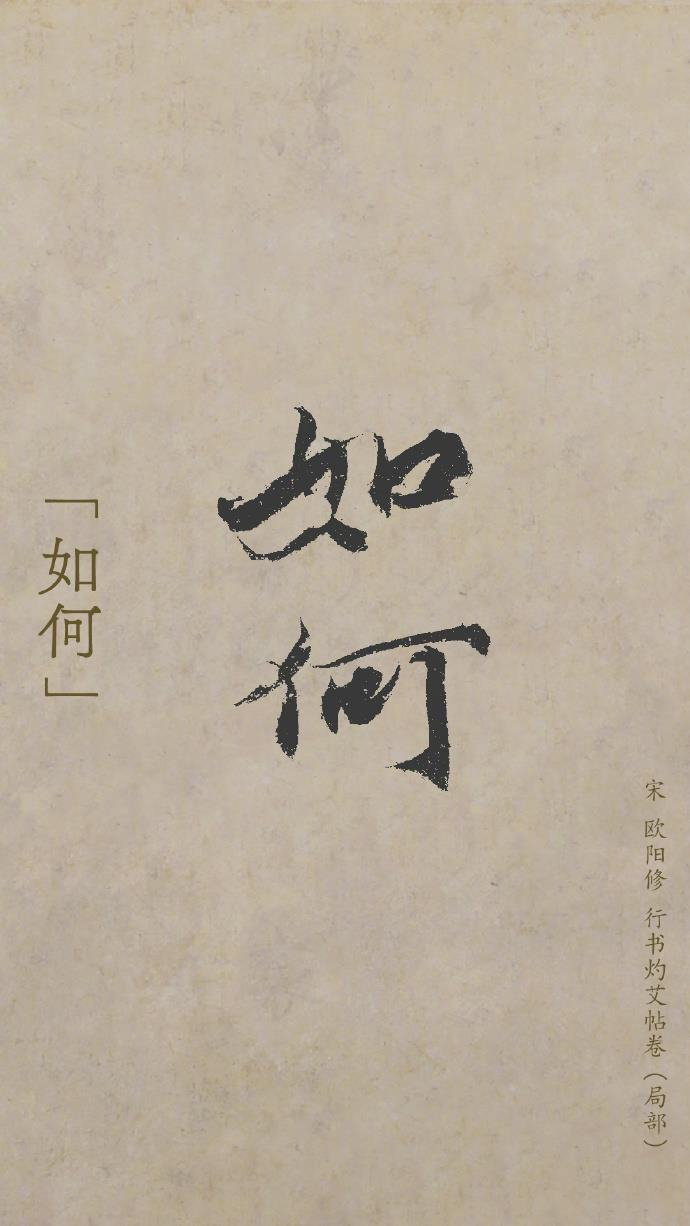 如何
「如何」
宋 欧阳修 行书灼艾帖卷（局部）